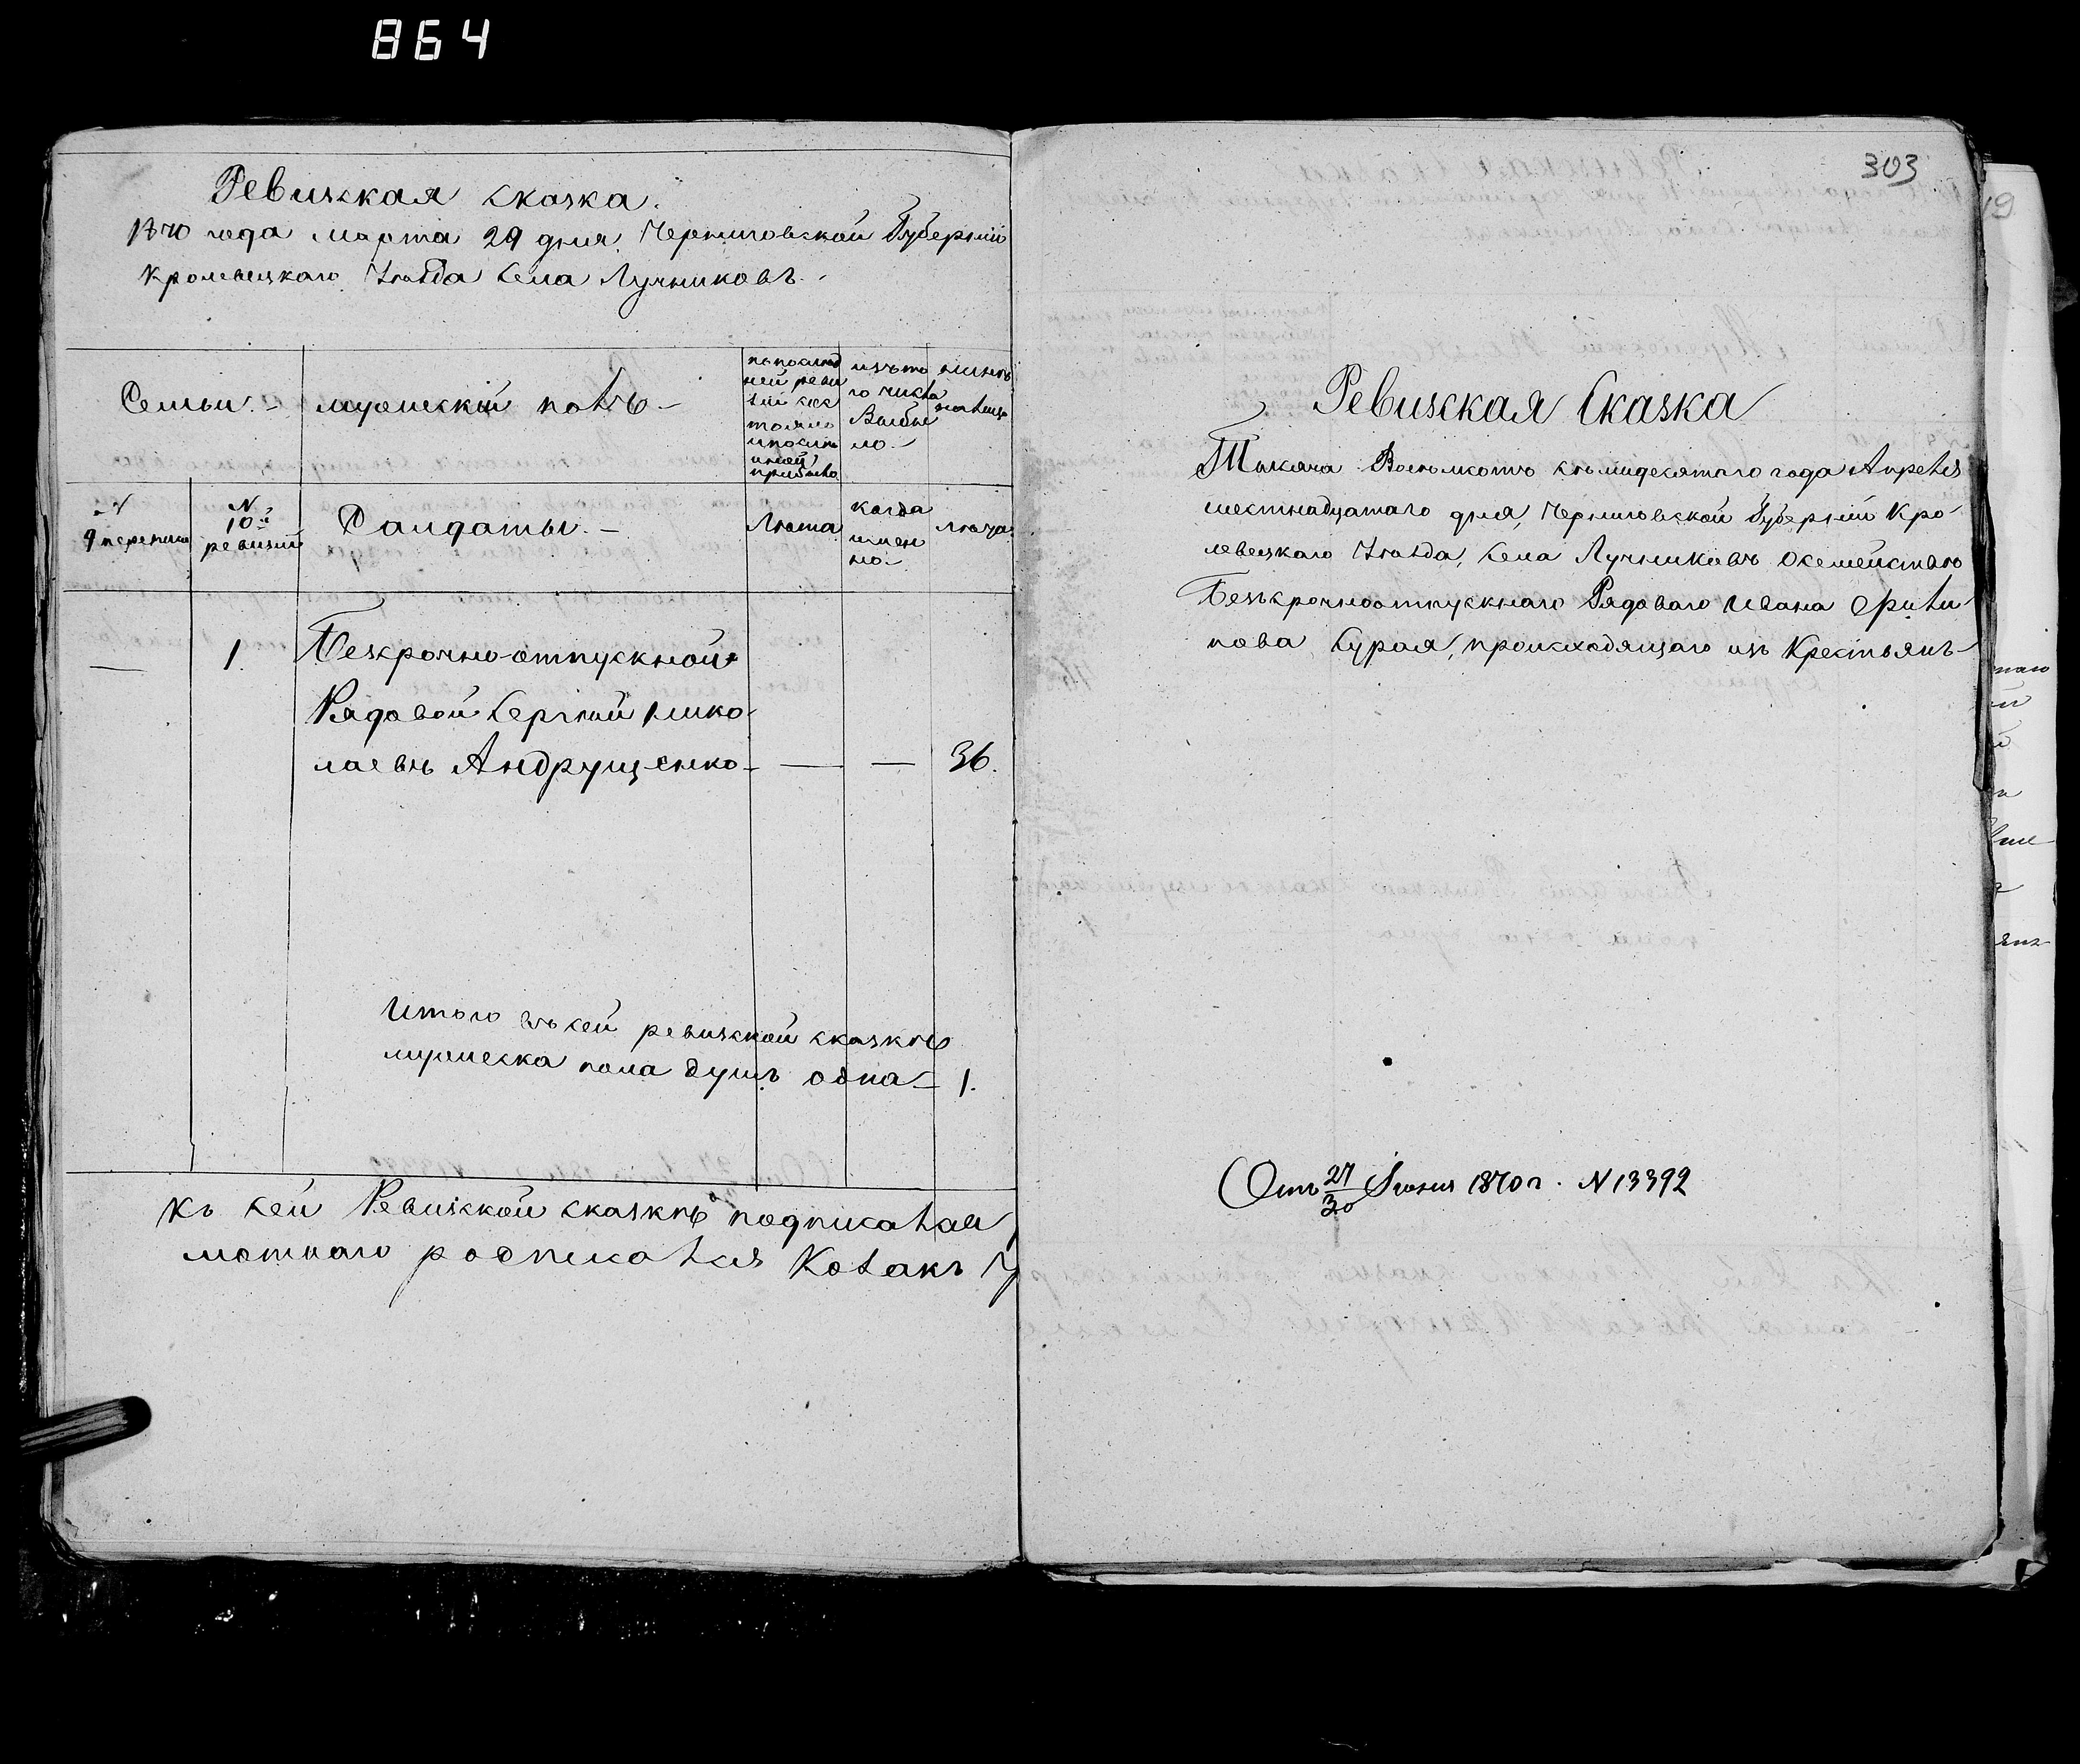 864
Ревизская сказка.
1870 года марта 29 дня Черниговской Губерніи
Кролевецкаго Уезда Села Лучниковъ.
Семьи. – мужескій полъ –
по послед
ней реви
зіи сос
тояло
и после
оной
прибыло
изъ то
го числа
Выбы
ло. –
ныне
налицо
№
9 перепиши
№
10й
ревизіи
Салдаты. –
Лета
когда
имен
но. –
лета.
— 1. Безсрочно-отпускной
Рядовой Сергей Нико-
лаевъ Андрущенко – — — 36.
Итого въ сей ревизской сказке
мужеска пола душъ одна – 1.
Къ сей Ревизской сказке подписалъ
мотнаго росписался Козакъ
303
Ревизская Сказка
Тысяча Восемсотъ семидесятаго года Апреля
шестнадцатаго дня, Черниговской Губерніи Кро-
левецкаго Уезда, Села Лучниковъ о семействе
Безсрочноотпускнаго Рядоваго Ивана Фили-
пова Сурая, происходящаго изъ Крестьянъ –
Отъ 27/30 Іюня 1870 г. № 13392